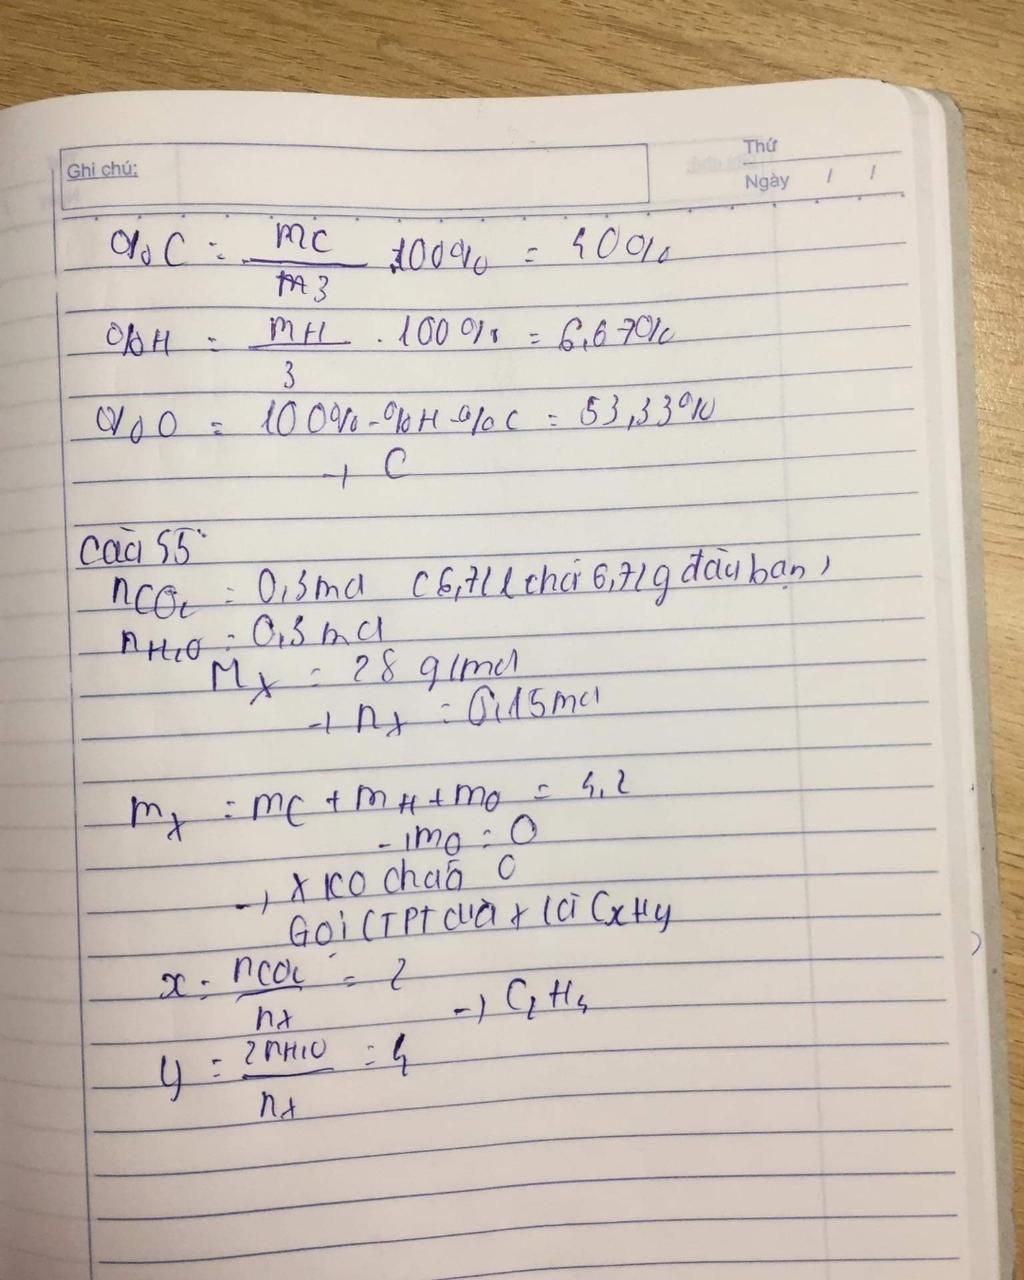 Ghi chú:
Thứ
Ngày / /
%C = mC / m3 . 100% = 40%
%H = mH / 3 . 100% = 6,67%
%O = 100% - %H - %C = 53,33%
→ C
Câu 45:
nCO2 = 0,3 mol (6,72 l chứ 6,72 g đâu bạn)
nH2O = 0,3 mol
MX = 28 g/mol
→ nX = 0,15 mol
mX = mC + mH + mO = 4,2
→ mO = 0
→ X ko chứa O
Gọi CTPT của X là CxHy
x = nCO2 / nX = 2
→ C2H4
y = 2nH2O / nX = 4